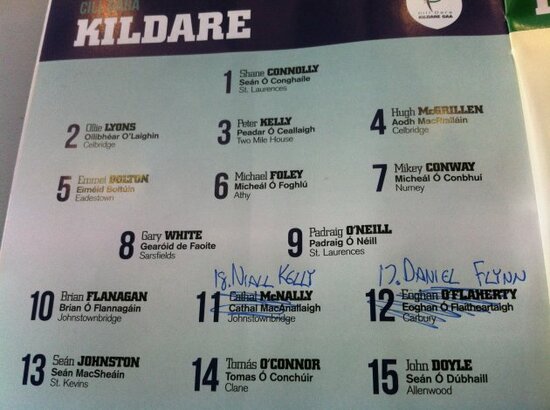 CILL DARA
KILDARE
CILL DARA
KILDARE GAA
1 Shane CONNOLLY
Seán Ó Conghaile
St. Laurences
2 Ollie LYONS
Oilibhéar O'Laighin
Celbridge
3 Peter KELLY
Peadar Ó Ceallaigh
Two Mile House
4 Hugh McGRILLEN
Aodh MacRailláin
Celbridge
5 Emmet BOLTON
Eiméid Boltúin
Eadestown
6 Michael FOLEY
Micheál Ó Foghlú
Athy
7 Mikey CONWAY
Micheál Ó Conbhuí
Nurney
8 Gary WHITE
Gearóid de Faoite
Sarsfields
9 Padraig O'NEILL
Padraig Ó Néill
St. Laurences
18. NIALL KELLY
17. DANIEL FLYNN
10 Brian FLANAGAN
Brian Ó Flannagáin
Johnstownbridge
11 Cathal McNALLY
Cathal MacAnallaigh
Johnstownbridge
12 Eoghan O'FLAHERTY
Eoghan Ó Flaitheartaigh
Carbury
13 Seán JOHNSTON
Seán MacSheáin
St. Kevins
14 Tomás O'CONNOR
Tomas Ó Conchúir
Clane
15 John DOYLE
Seán Ó Dúbhaill
Allenwood